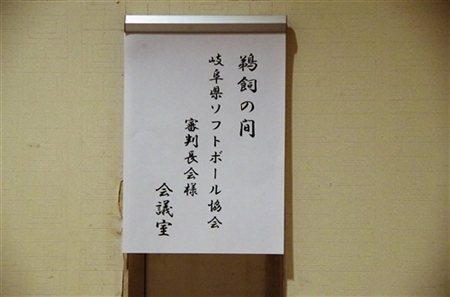 鵜飼の间
岐阜県ソフトボール協会
審判長会様
会議室